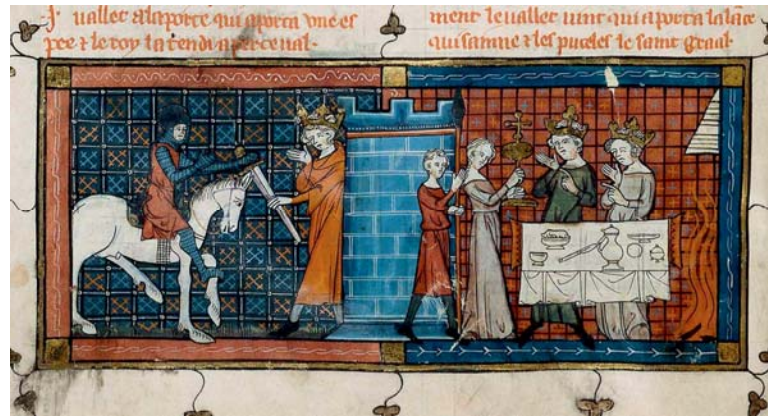 uallet a la porte qui aporta vne es
pee ⁊ le roy la tendi a perceual·
ment le uallet uint qui aporta la lāce
qui sainne ⁊ les puceles le saint Graal·